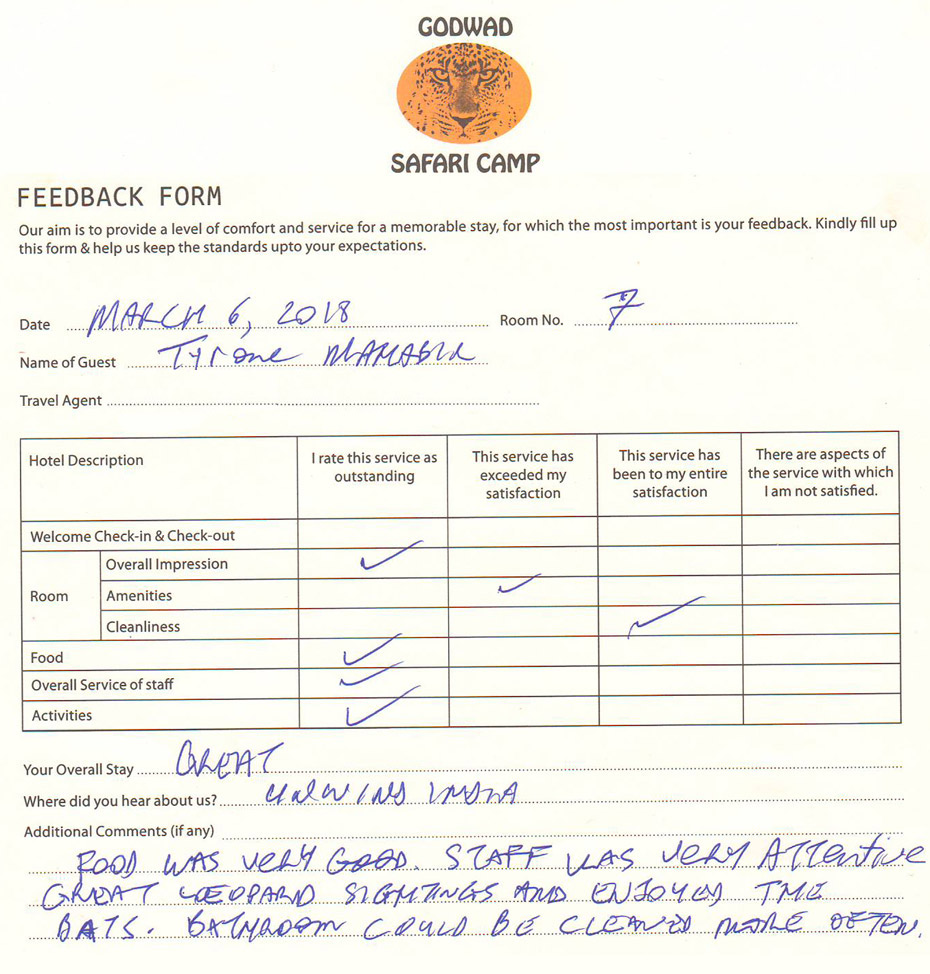 GODWAD
SAFARI CAMP
FEEDBACK FORM
Our aim is to provide a level of comfort and service for a memorable stay, for which the most important is your feedback. Kindly fill up
this form & help us keep the standards upto your expectations.
Date MARCH 6, 2018 Room No. 7
Name of Guest Tyrone
Travel Agent
Hotel Description
I rate this service as outstanding
This service has exceeded my satisfaction
This service has been to my entire satisfaction
There are aspects of the service with which I am not satisfied.
Welcome Check-in & Check-out
Room
Overall Impression
Amenities
Cleanliness
Food
Overall Service of staff
Activities
Your Overall Stay GREAT
Where did you hear about us? INDIA
Additional Comments (if any)
FOOD WAS VERY GOOD. STAFF WAS VERY ATTENTIVE
GREAT LEOPARD SIGHTINGS AND ENJOYED THE
BATS. BATHROOM COULD BE CLEANED MORE OFTEN.